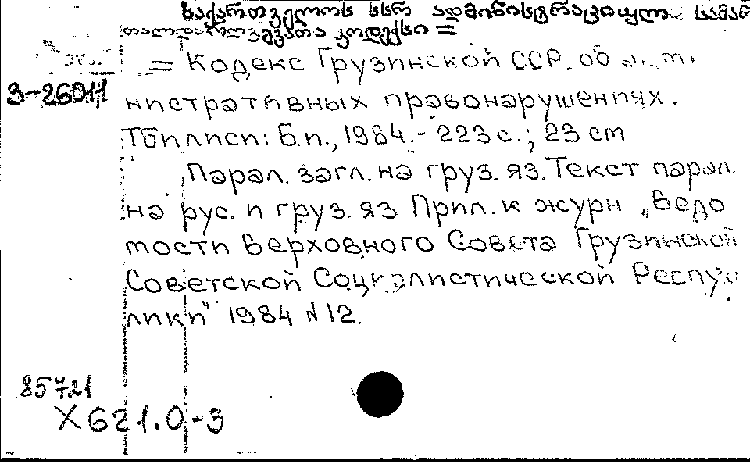 საქართველოს სსრ ადმინისტრაციულ სამარ
თალდარღვევათა კოდექსი =
= Кодекс Грузинской ССР об
3-26011
нистративных правонарушениях.
Тбилиси: Б.и., 1984.- 223 с.; 23 cm
Парал. загл. на груз. яз. Текст парал.
на рус. и груз. яз Прил. к журн „Ведо
мости Верховного Совета Грузинской
Советской Социалистической Респуб
лики" 1984 N 12.
85721
X621.0-3